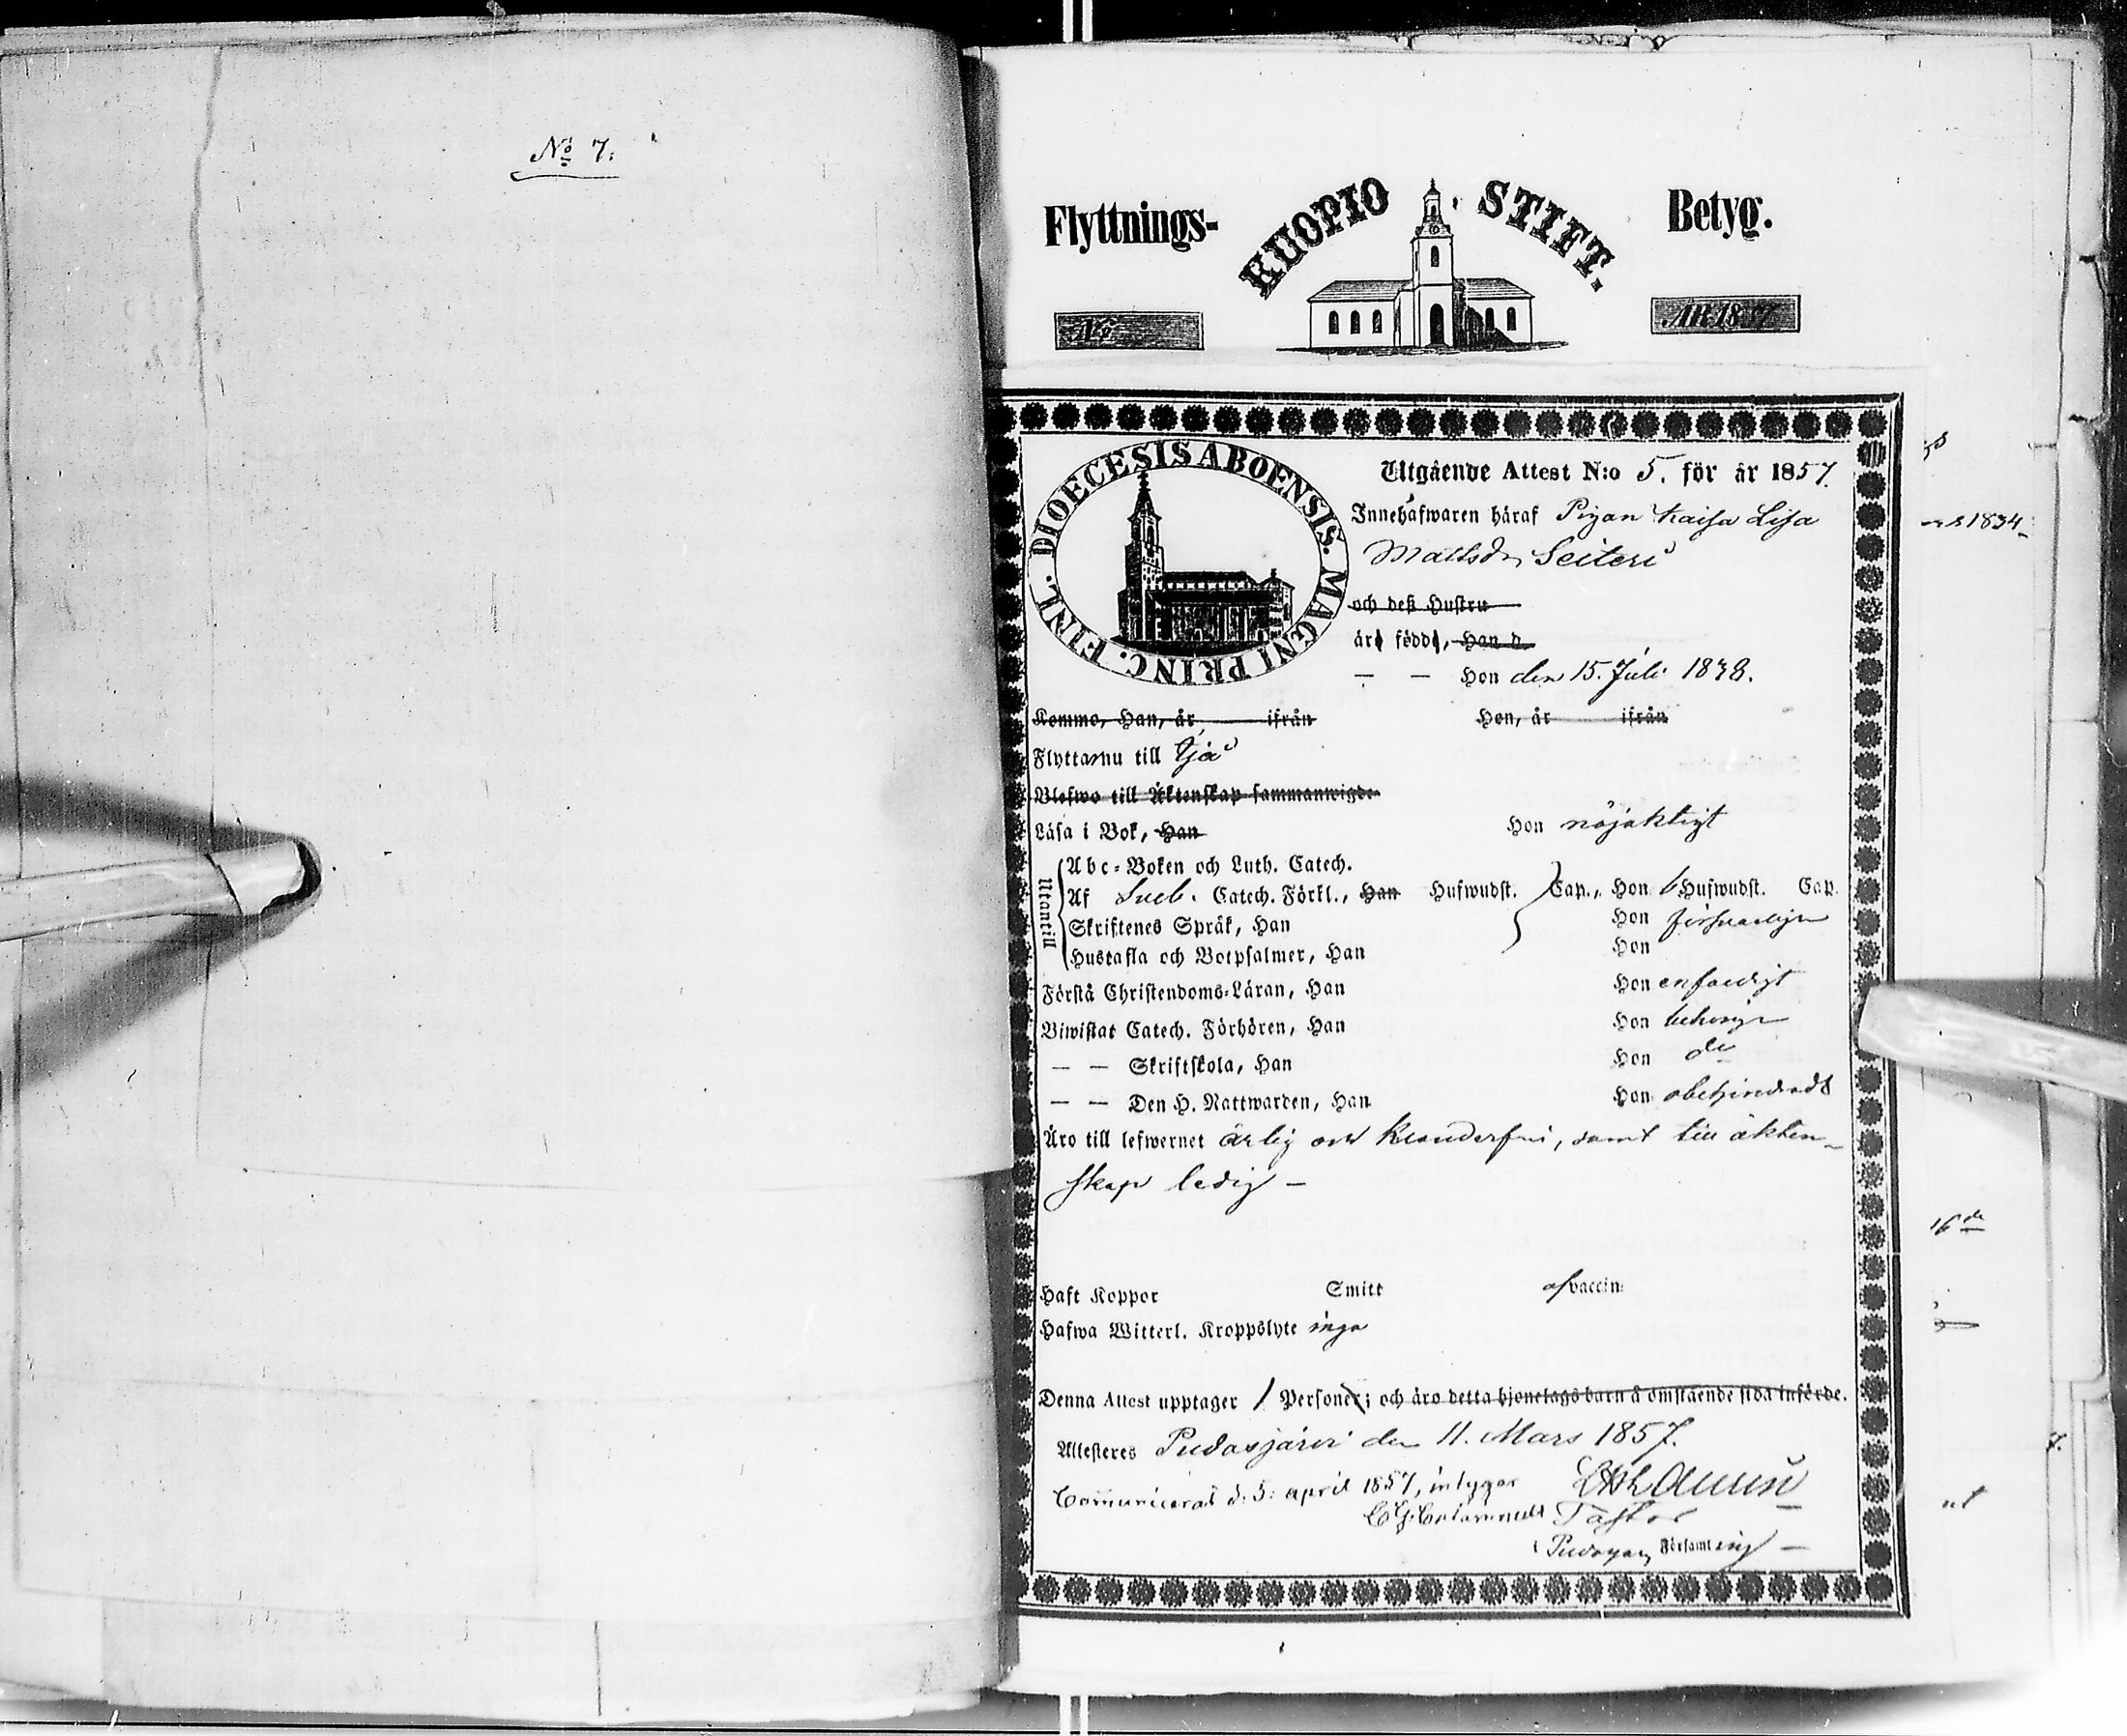 No 7.
Flyttnings- KUOPIO STIFT. Betyg.
No
ÅR 1857
DIOECESIS ABOENSIS. MAGNI PRINC. FINL.
Utgående Attest N:o 5. för år 1857.
Innehafwaren häraf Pigan Kaisa Lisa
Mattsdr Seiteri
och deß Hustru
äro födde, Han d.
— — Hon den 15. Juli 1838.
Kommo, Han, år ifrån Hon, år ifrån
Flytta nu till Ijå
Blefwo till Äktenskap sammanwigde
Läsa i Bok, Han Hon nöjaktigt
Utantill
Abc-Boken och Luth. Catech.
Af Sveb. Catech. Förkl., Han Hufwudst. Cap., Hon 6 Hufwudst. Cap.
Skriftenes Språk, Han Hon försvarligen
Hustafla och Botpsalmer, Han Hon
Förstå Christendoms-Läran, Han Hon enfaldigt
Biwistat Catech. Förhören, Han Hon behörigen
— — Skriftskola, Han Hon do
— — Den H. Nattwarden, Han Hon obehindradt
Äro till lefwernet ärlig och klanderfri, samt till äkten-
skap ledig —
Haft Koppor Smitt af vaccin
Hafwa Witterl. Kroppslyte inga
Denna Attest upptager 1 Personer; och äro detta hjonelags barn å omstående sida införde.
Attesteras Pudasjärvi den 11. Mars 1857.
Communicerat d. 5: april 1857, intygar
Pastor
Församling —
1834
16de
7.
ut